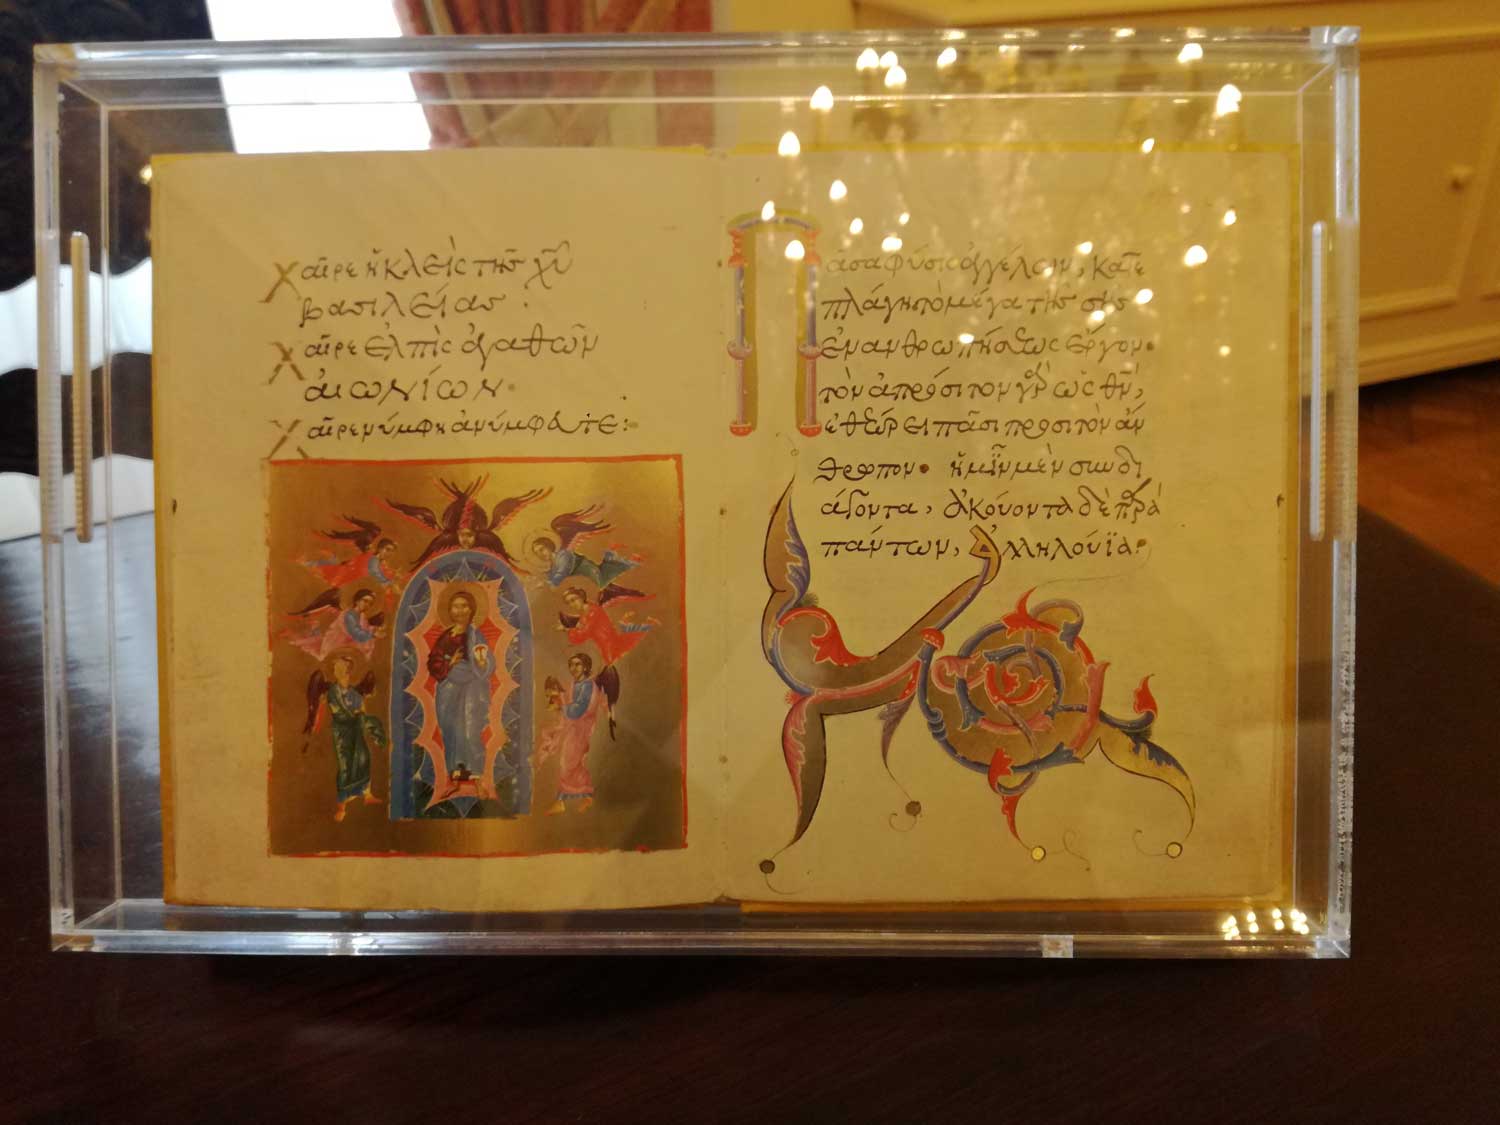 Χαῖρε ἡ κλεὶς τῆς χυ
βασιλείας·
Χαῖρε ἐλπὶς ἀγαθῶν
αἰωνίων·
Χαῖρε νύμφη ἀνύμφευτε:
Πᾶσα φύσις ἀγγέλων, κατε
πλάγη τὸ μέγα τῆς σῆς
ἐνανθρωπήσεως ἔργον·
τὸν ἀπρόσιτον γὰρ ὡς θν,
ἐθεώρει πᾶσι προσιτὸν ἄν
θρωπον· ἡμῖν μὲν συνδι
άγοντα, ἀκούοντα δὲ παρὰ
πάντων, Ἀλληλούϊα·